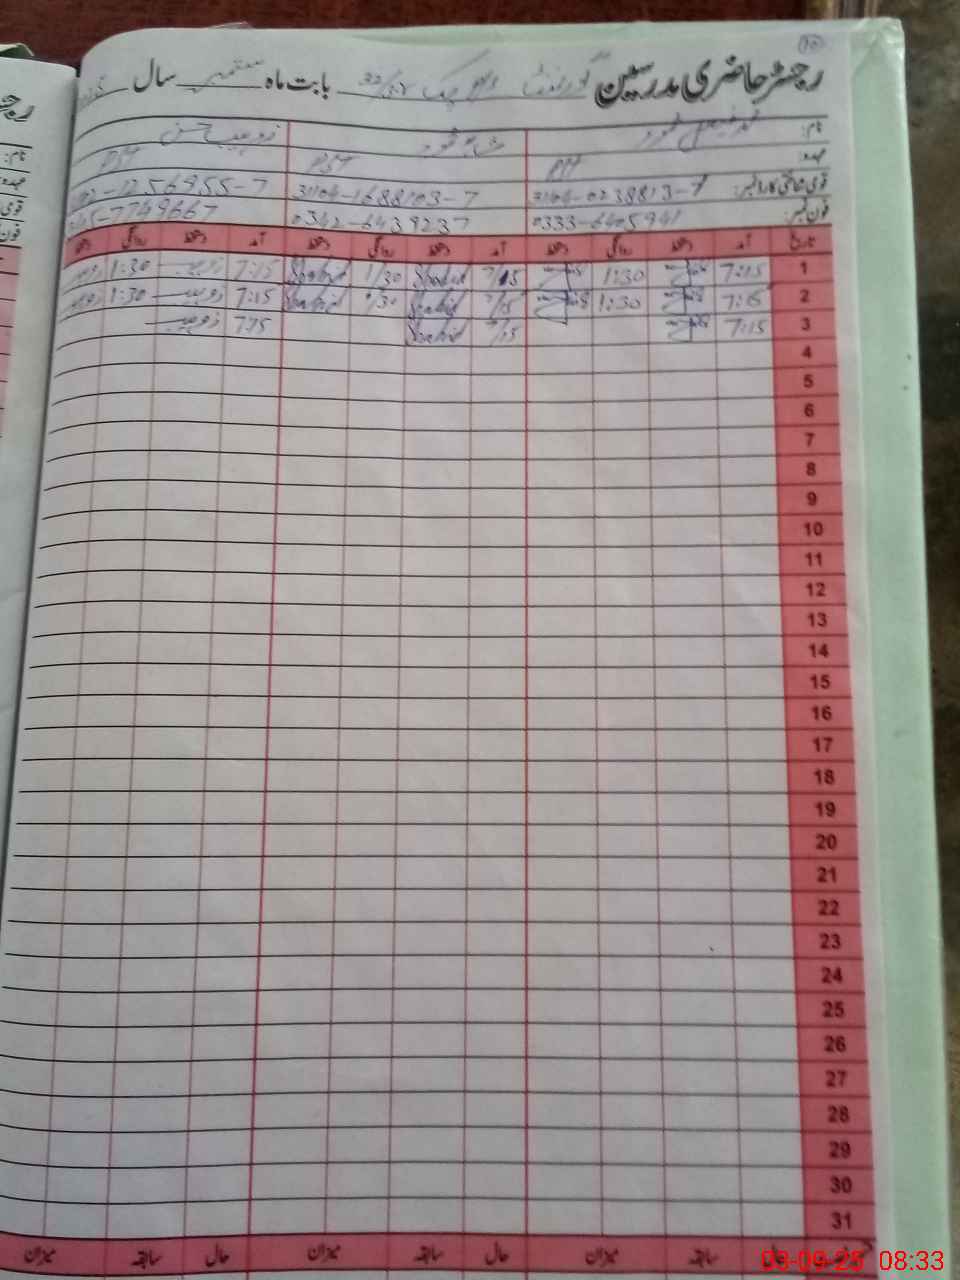 10
رجسٹر حاضری مدرسین گورنمنٹ چک بابت ماہ ستمبر سال
نام: شاہد محمود زوہیب حسن
عہدہ: PST PST
قومی شناختی کارڈ نمبر: 31104-1688103-7 -1256955-7
فون نمبر: 0333-6405941 0342-6439237 -7749667
تاریخ آمد دستخط روانگی دستخط آمد دستخط روانگی دستخط آمد دستخط روانگی دستخط
1 7:15 1:30 7/15 Shahid 1/30 Shahid 7:15 زوہیب 1:30 زوہیب
2 7:15 1:30 7/15 Shahid 1/30 Shahid 7:15 زوہیب 1:30 زوہیب
3 7:15 7/15 Shahid 7:15 زوہیب
4
5
6
7
8
9
10
11
12
13
14
15
16
17
18
19
20
21
22
23
24
25
26
27
28
29
30
31
حال سابقہ میزان حال سابقہ میزان حال سابقہ میزان
03-09-25 08:33